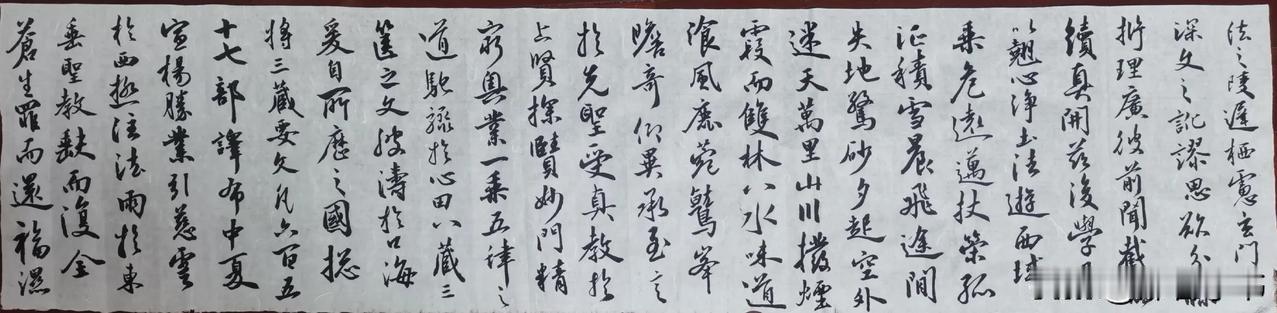 法之陵遲栖慮玄門
深文之訛謬思欲分
析理廣彼前聞截
續真開茲後學
以翹心淨土法遊西域
乘危遠邁杖策孤
征積雪晨飛途間
失地驚砂夕起空外
迷天萬里山川撥煙
霞而雙林八水味道
飡風鹿菀鷲峯
瞻奇仰異承至言
於先聖受真教於
上賢探賾妙門精
窮奧業一乘五律之
道馳驟於心田八藏三
篋之文波濤於口海
爰自所歷之國總
將三藏要文凡六百五
十七部譯布中夏
宣楊勝業引慈雲
於西極注法雨於東
垂聖教缺而復全
蒼生罪而還福濕